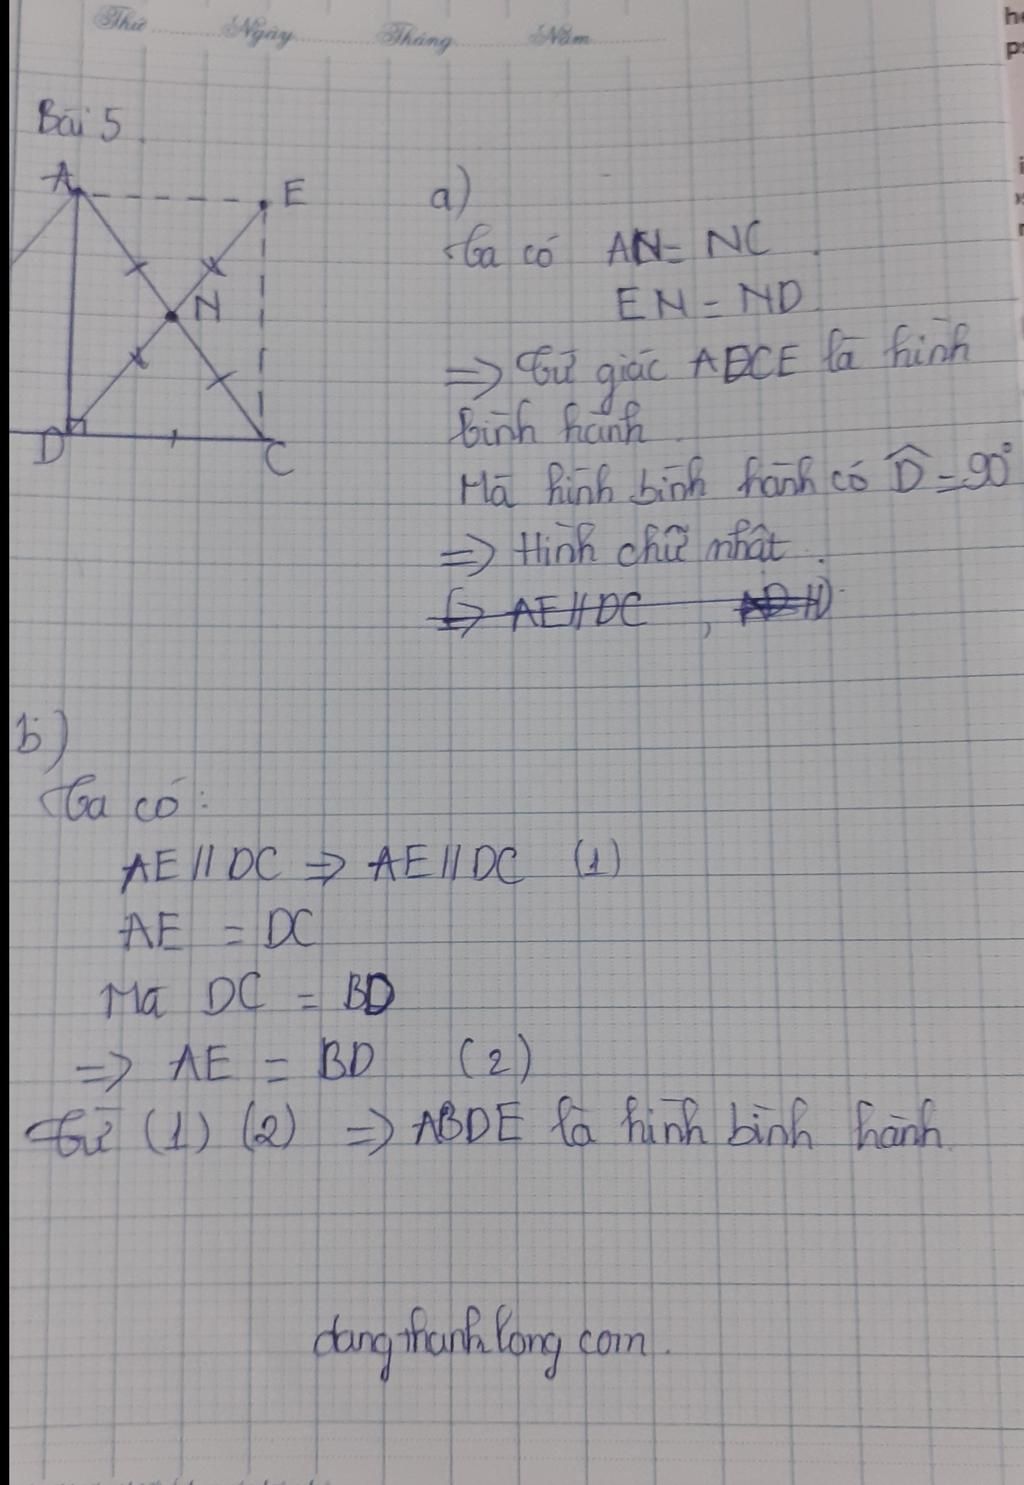 Thứ Ngày Tháng Năm
Bài 5
A
E
N
D
C
a)
Ta có AN = NC
EN = ND
=> Tứ giác ADCE là hình
bình hành
Mà hình bình hành có D̂ = 90°
=> Hình chữ nhật
=> AE // DC ,
b)
Ta có:
AE // DC => AE // DC (1)
AE = DC
Mà DC = BD
=> AE = BD (2)
Từ (1) (2) => ABDE là hình bình hành
dangthanhlong com.